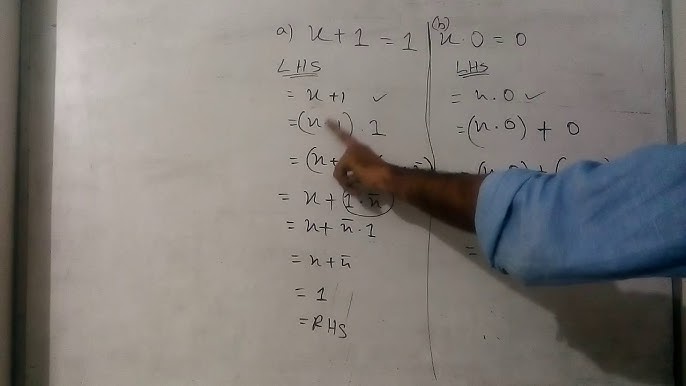 a) x + 1 = 1
LHS
= x + 1 ✓
= (x + 1) . 1
= (x +
= x + 1 . x̄
= x + x̄ . 1
= x + x̄
= 1
= RHS
(b) x . 0 = 0
LHS
= x . 0 ✓
= (x . 0) + 0